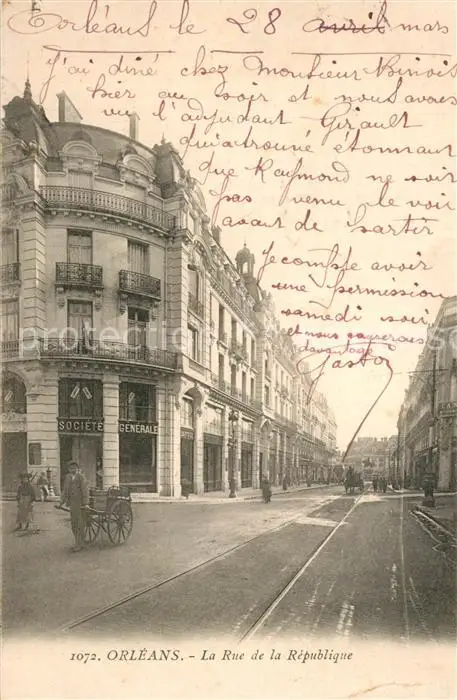 Orléans le 28 avril mars
j'ai diné chez Monsieur Benoist
hier au soir et nous avons
vu l'adjudant Girault
qui a trouvé étonnant
que Raymond ne soit
pas venu le voir
avant de partir
Je compte avoir
une permission
samedi soir
et nous causerons
davantage
Gaston
SOCIÉTÉ GÉNÉRALE
1072. ORLÉANS. - La Rue de la République